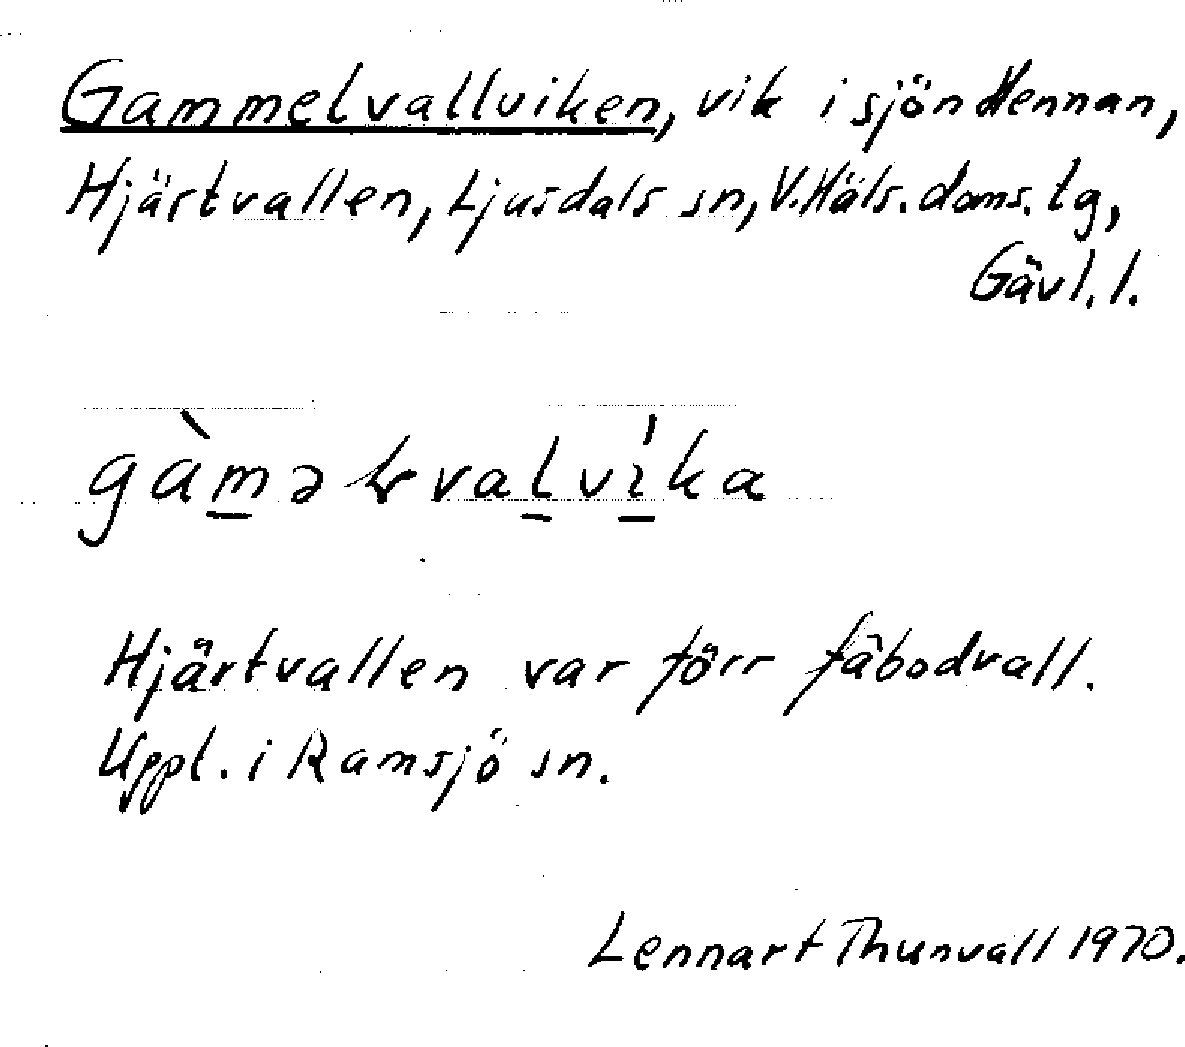 Gammelvallviken, vik i sjön Hennan,
Hjärtvallen, Ljusdals sn, V. Häls. doms. tg,
Gävl. l.
Hjärtvallen var förr fäbodvall.
Uppl. i Ramsjö sn.
Lennart Thunvall 1970.